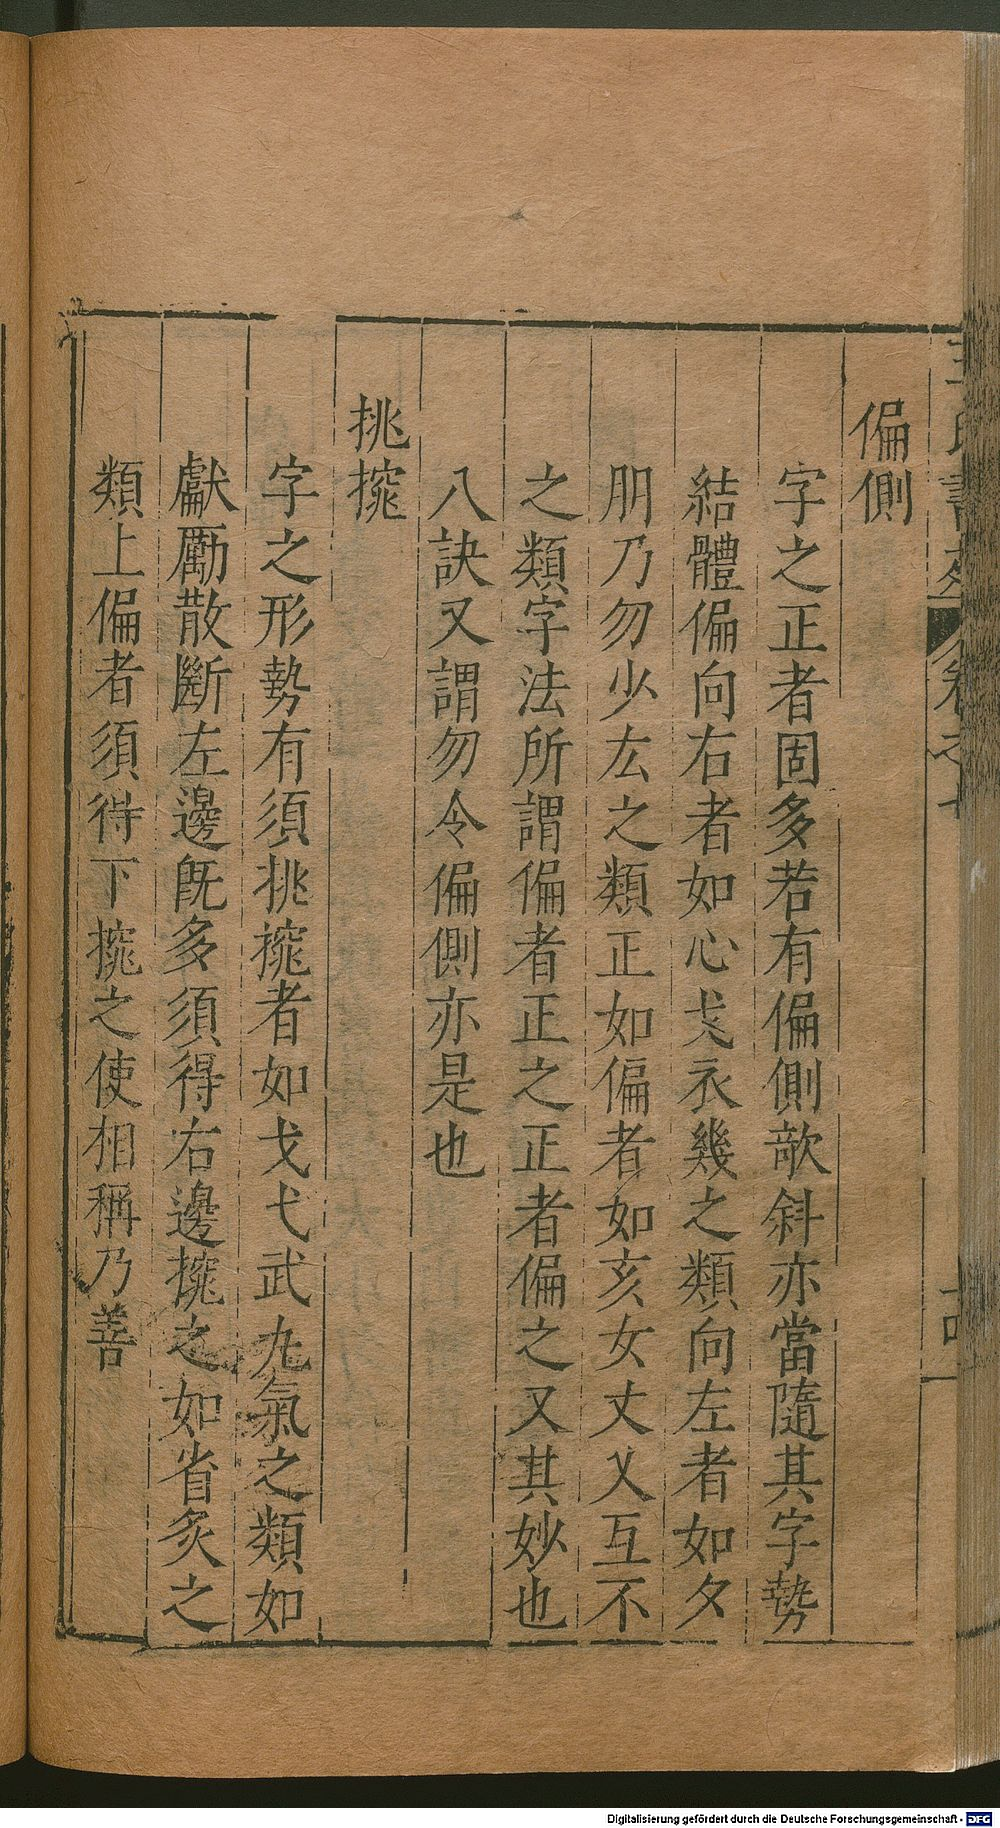 偏側
字之正者固多若有偏側欹斜亦當隨其字勢
結體偏向右者如心戈衣幾之類向左者如夕
朋乃勿少厷之類正如偏者如亥女丈乂互不
之類字法所謂偏者正之正者偏之又其妙也
八訣又謂勿令偏側亦是也
挑㩼
字之形勢有須挑㩼者如戈弋武九氣之類如
獻勵散斷左邊旣多須得右邊㩼之如省炙之
類上偏者須得下㩼之使相稱乃善
Digitalisierung gefördert durch die Deutsche Forschungsgemeinschaft - DFG